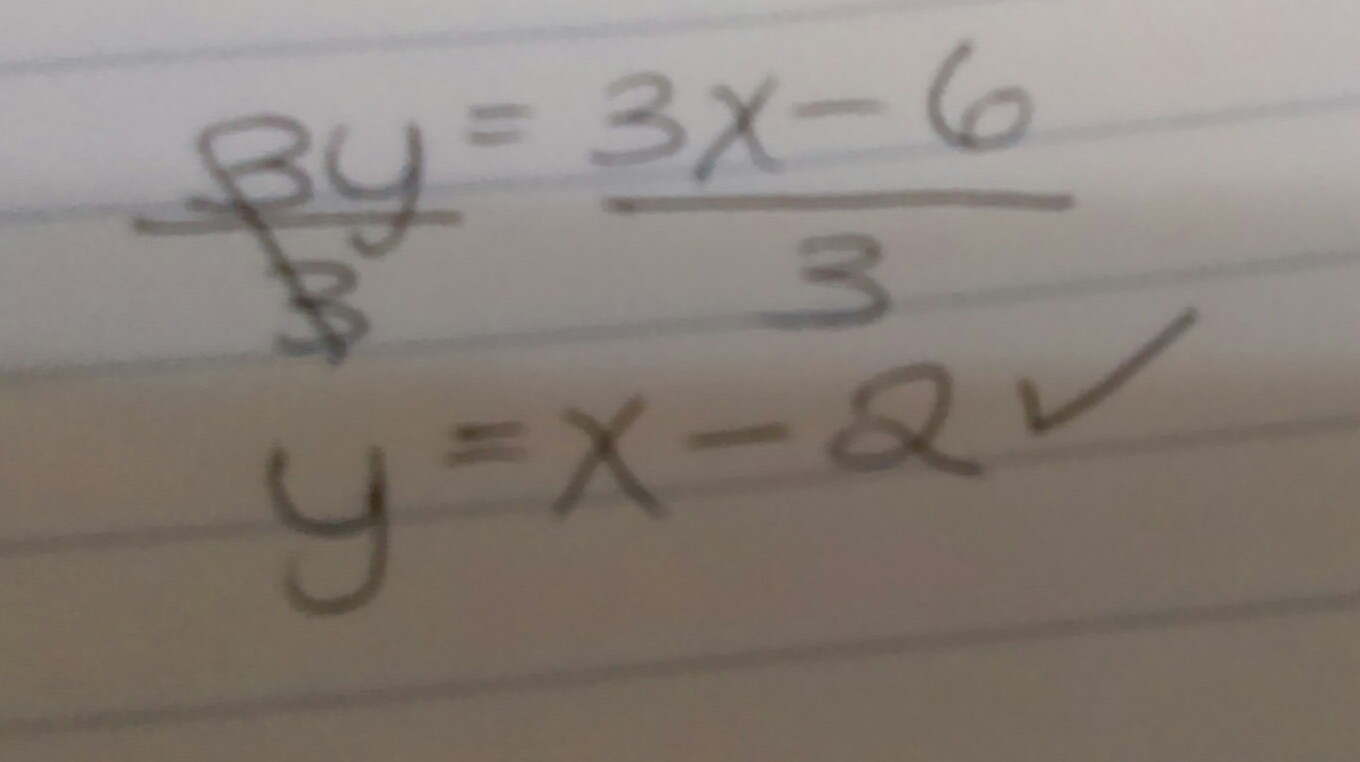 3y = 3x - 6
3 3
y = x - 2 ✓